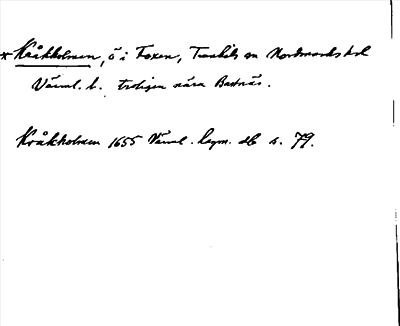 *Kråkholmen, ö i Foxen, Trankils sn Nordmarks hd
Värml. l. troligen nära Bastnäs.
Kråkholmen 1655 Värml. lagm. db s. 79.